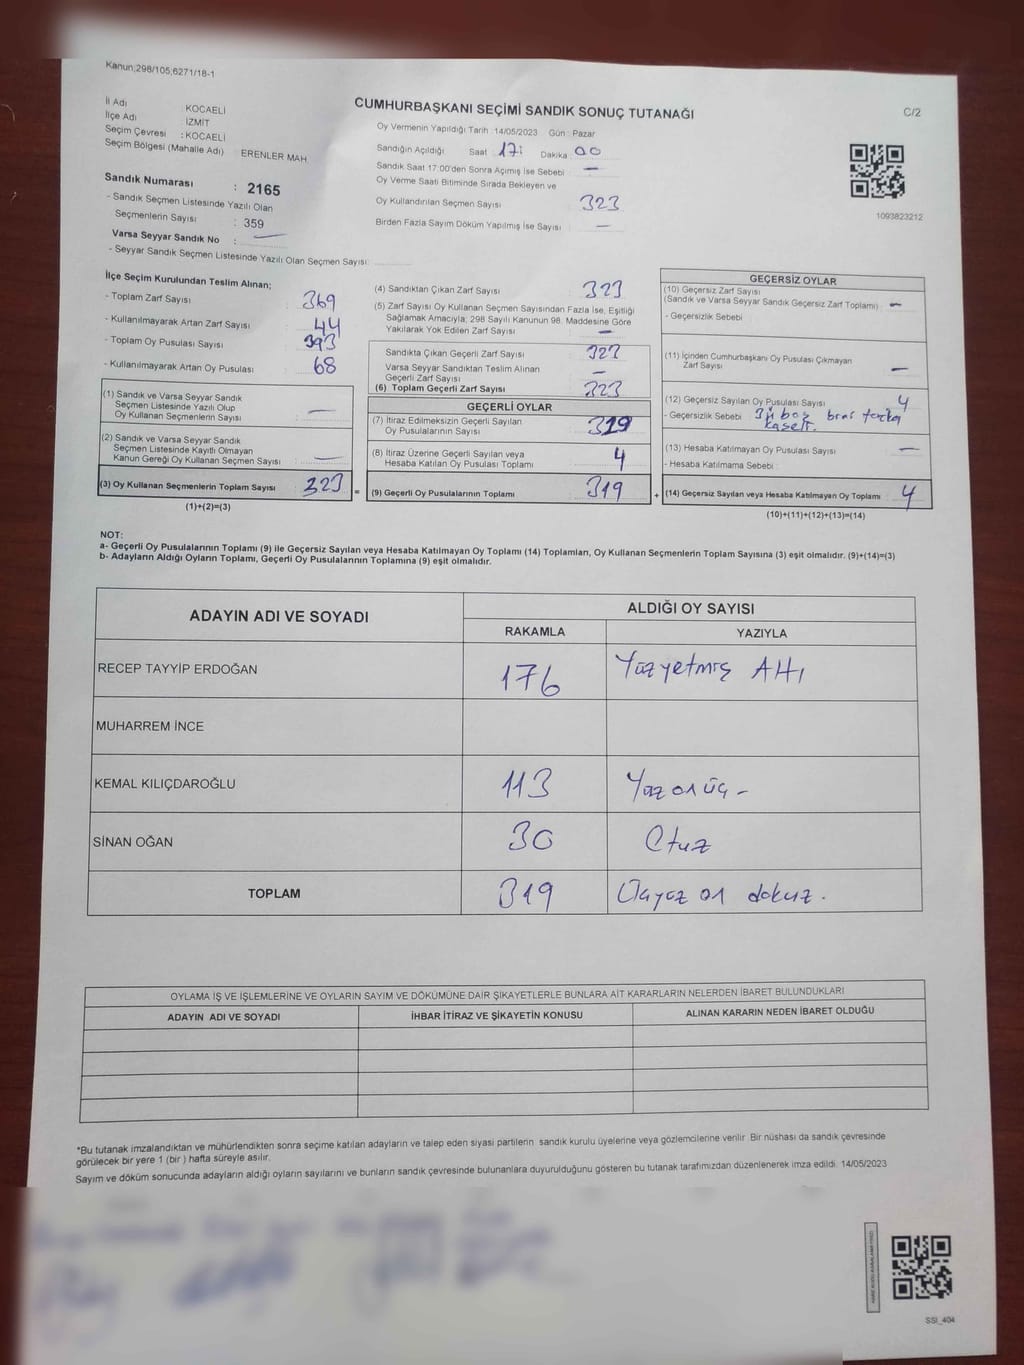 Kanun;298/105;6271/18-1
İl Adı KOCAELİ
İlçe Adı İZMİT
Seçim Çevresi : KOCAELİ
Seçim Bölgesi (Mahalle Adı) ERENLER MAH.
CUMHURBAŞKANI SEÇİMİ SANDIK SONUÇ TUTANAĞI
C/2
Oy Vermenin Yapıldığı Tarih 14/05/2023 Gün : Pazar
Sandığın Açıldığı Saat 17: Dakika : 00
Sandık Saat 17:00'den Sonra Açımış İse Sebebi : —
Oy Verme Saati Bitiminde Sırada Bekleyen ve
Oy Kullandırılan Seçmen Sayısı 323
Birden Fazla Sayım Döküm Yapılmış İse Sayısı : —
1093823212
Sandık Numarası : 2165
- Sandık Seçmen Listesinde Yazılı Olan
Seçmenlerin Sayısı : 359
Varsa Seyyar Sandık No : —
- Seyyar Sandık Seçmen Listesinde Yazılı Olan Seçmen Sayısı:
İlçe Seçim Kurulundan Teslim Alınan;
- Toplam Zarf Sayısı : 369
- Kullanılmayarak Artan Zarf Sayısı : 44
- Toplam Oy Pusulası Sayısı : 393
- Kullanılmayarak Artan Oy Pusulası : 68
(1) Sandık ve Varsa Seyyar Sandık
Seçmen Listesinde Yazılı Olup
Oy Kullanan Seçmenlerin Sayısı : —
(2) Sandık ve Varsa Seyyar Sandık
Seçmen Listesinde Kayıtlı Olmayan
Kanun Gereği Oy Kullanan Seçmen Sayısı : —
(3) Oy Kullanan Seçmenlerin Toplam Sayısı : 323
(1)+(2)=(3)
=
(4) Sandıktan Çıkan Zarf Sayısı : 323
(5) Zarf Sayısı Oy Kullanan Seçmen Sayısından Fazla İse, Eşitliği
Sağlamak Amacıyla; 298 Sayılı Kanunun 98. Maddesine Göre
Yakılarak Yok Edilen Zarf Sayısı : —
Sandıkta Çıkan Geçerli Zarf Sayısı : 323
Varsa Seyyar Sandıktan Teslim Alınan
Geçerli Zarf Sayısı : —
(6) Toplam Geçerli Zarf Sayısı : 323
GEÇERLİ OYLAR
(7) İtiraz Edilmeksizin Geçerli Sayılan
Oy Pusulalarının Sayısı : 319
(8) İtiraz Üzerine Geçerli Sayılan veya
Hesaba Katılan Oy Pusulası Toplamı : 4
(9) Geçerli Oy Pusulalarının Toplamı : 319
+
GEÇERSİZ OYLAR
(10) Geçersiz Zarf Sayısı
(Sandık ve Varsa Seyyar Sandık Geçersiz Zarf Toplamı) : —
- Geçersizlik Sebebi :
(11) İçinden Cumhurbaşkanı Oy Pusulası Çıkmayan
Zarf Sayısı : —
(12) Geçersiz Sayılan Oy Pusulası Sayısı : 4
- Geçersizlik Sebebi : boş
(13) Hesaba Katılmayan Oy Pusulası Sayısı : —
- Hesaba Katılmama Sebebi :
(14) Geçersiz Sayılan veya Hesaba Katılmayan Oy Toplamı : 4
(10)+(11)+(12)+(13)=(14)
NOT:
a- Geçerli Oy Pusulalarının Toplamı (9) ile Geçersiz Sayılan veya Hesaba Katılmayan Oy Toplamı (14) Toplamları, Oy Kullanan Seçmenlerin Toplam Sayısına (3) eşit olmalıdır. (9)+(14)=(3)
b- Adayların Aldığı Oyların Toplamı, Geçerli Oy Pusulalarının Toplamına (9) eşit olmalıdır.
ADAYIN ADI VE SOYADI ALDIĞI OY SAYISI
RAKAMLA YAZIYLA
RECEP TAYYİP ERDOĞAN 176 Yüzyetmiş Altı
MUHARREM İNCE
KEMAL KILIÇDAROĞLU 113 Yüz on üç -
SİNAN OĞAN 30 Otuz
TOPLAM 319 Üçyüz on dokuz.
OYLAMA İŞ VE İŞLEMLERİNE VE OYLARIN SAYIM VE DÖKÜMÜNE DAİR ŞİKAYETLERLE BUNLARA AİT KARARLARIN NELERDEN İBARET BULUNDUKLARI
ADAYIN ADI VE SOYADI İHBAR İTİRAZ VE ŞİKAYETİN KONUSU ALINAN KARARIN NEDEN İBARET OLDUĞU
*Bu tutanak imzalandıktan ve mühürlendikten sonra seçime katılan adayların ve talep eden siyasi partilerin sandık kurulu üyelerine veya gözlemcilerine verilir. Bir nüshası da sandık çevresinde
görülecek bir yere 1 (bir) hafta süreyle asılır.
Sayım ve döküm sonucunda adayların aldığı oyların sayılarını ve bunların sandık çevresinde bulunanlara duyurulduğunu gösteren bu tutanak tarafımızdan düzenlenerek imza edildi. 14/05/2023
SSI_404